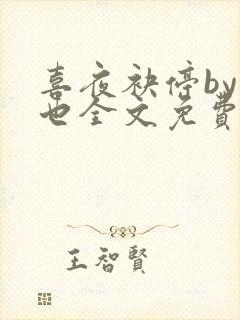 喜夜袂停by
也全文免費
王智賢